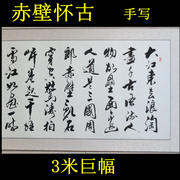 赤壁怀古
手写
大江東去浪淘
盡千古風流人
物故壘西邊
人道是三國周
郎赤壁亂石
穿空驚濤拍
岸捲起千堆
雪江山如畫一時
3米巨幅